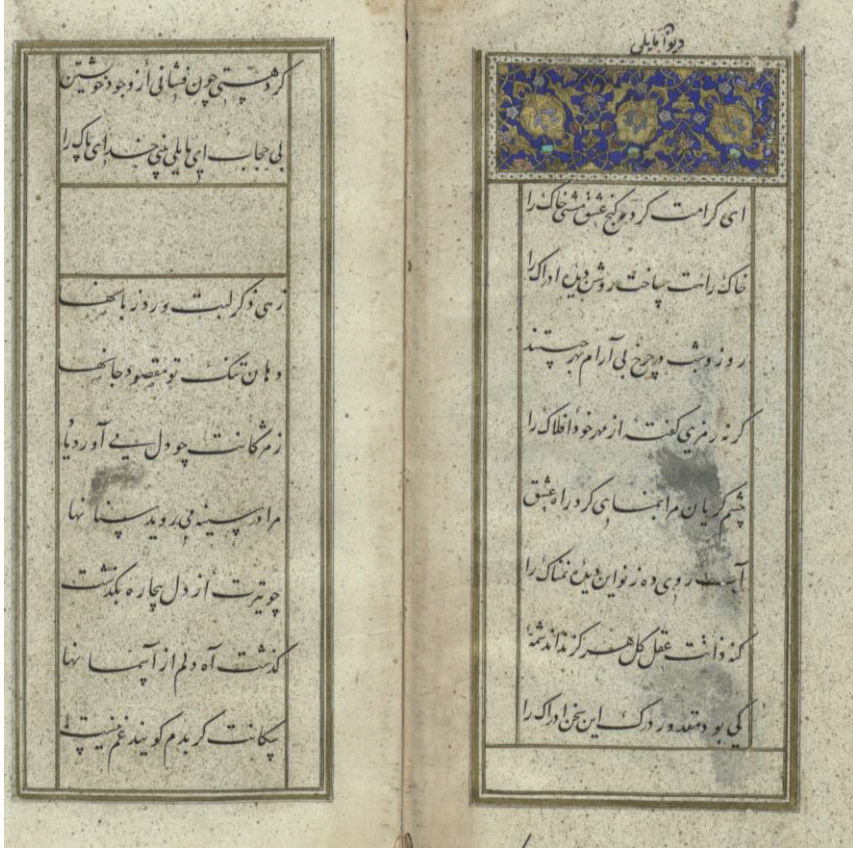 دیوان بابلی
ای کرامت کرده کنج عشق مشتی خاک را
خاک راهت ساخت روشن دیدهٔ ادراک را
روز و شب در چرخ بی آرام مهر چستند
کر نه رمزی کفت از مهر خود افلاک را
چشم کریان مرا بنمای کرد راه عشق
آب روی ده ز نو این دیدهٔ نمناک را
کنه ذاتت عقل کل هرکز نداند شمهٔ
کی بود مقدور درک این سخن ادراک را
کرد هستی چون فشانی از وجود خویشتن
بی حجاب ای بابلی بینی خدای پاک را
زهی ذکر لبت ورد زبانها
دهان تنک تو مقصود جانها
ز مژکانت چو دل می آورد یاد
مرا در سینه می روید سنانها
چو تیرت از دل بیچاره بکذشت
کذشت آه دلم از آسمانها
پیکانت کر بدم کویند غم نیست